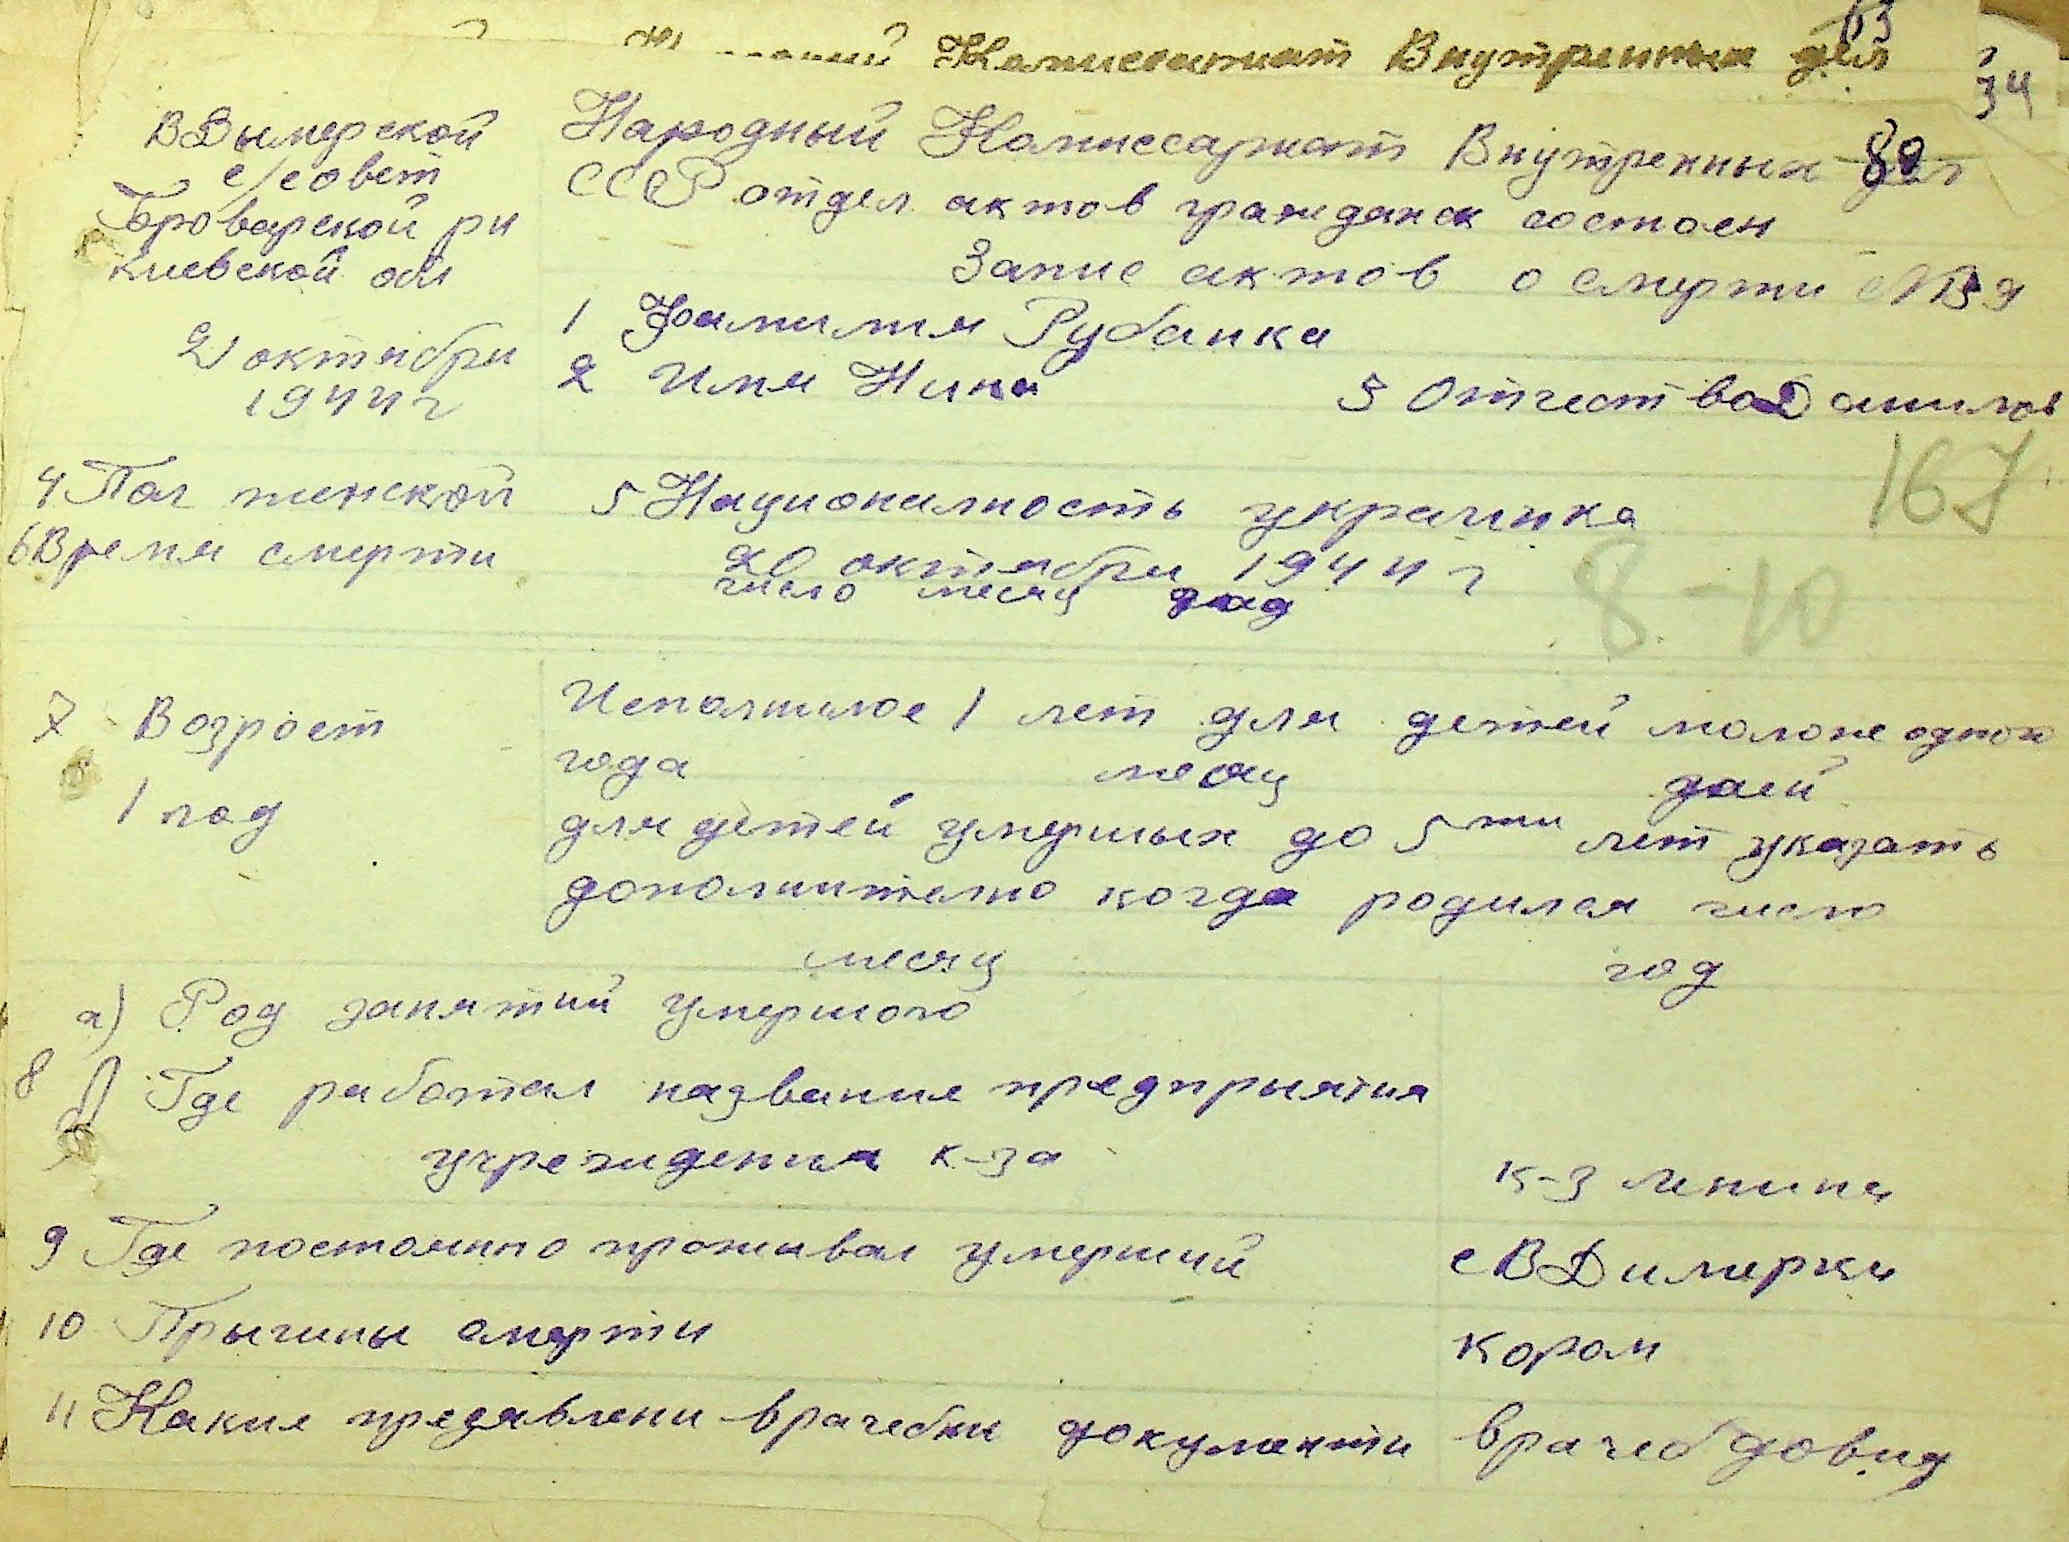 Комиссариат Внутренных дел
63
34
ВДымерской
с/совет
Броварской рн
Киевской обл
Народный Комиссариат Внутренных дел
82
СССР отдел актов гражданск состоен
Запис актов о смерти №39
21 октября
1944 г
1 Фамилия Рубанка
2 Имя Нина 3 Отчество Данилов
167
4 Пол женской 5 Националность украинка
6 Время смерти 20 октября 1944 г
число месяц год
8-10
7 Возраст
1 год
Исполнилое 1 лет для детей моложе одного
года месяц дней
для детей умерших до 5ти лет указать
дополнително когда родился число
месяц год
а) Род занятий умершого
8 б) Где работал название предприятия
учреждения к-за к-з Ленина
9 Где постоянно проживал умерший с ВДимерки
10 Прычины смерти кором
11 Какие предявлени врачебни документи врачеб довид